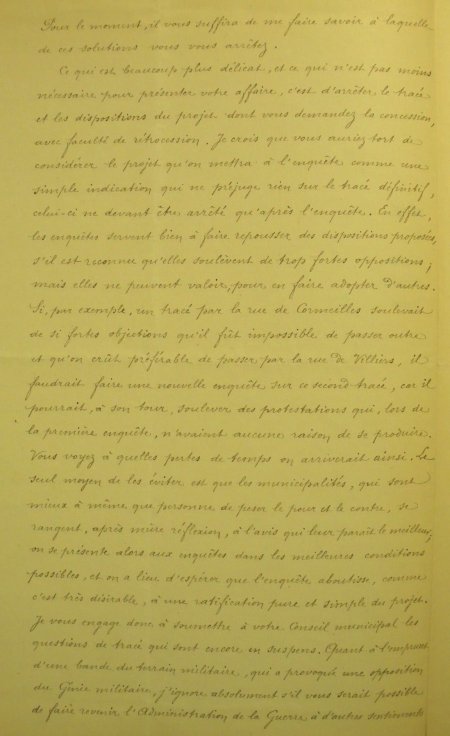 Pour le moment, il vous suffira de me faire savoir à laquelle
de ces solutions vous vous arrêtez.
Ce qui est beaucoup plus délicat, et ce qui n'est pas moins
nécessaire pour présenter votre affaire, c'est d'arrêter le tracé
et les dispositions du projet dont vous demandez la concession,
avec faculté de rétrocession. Je crois que vous auriez tort de
considérer le projet qu'on mettra à l'enquête comme une
simple indication qui ne préjuge rien sur le tracé définitif,
celui-ci ne devant être arrêté qu'après l'enquête. En effet,
les enquêtes servent bien à faire repousser des dispositions proposées,
s'il est reconnu qu'elles soulèvent de trop fortes oppositions;
mais elles ne peuvent valoir, pour en faire adopter d'autres.
Si, par exemple, un tracé par la rue de Cormeilles soulevait
de si fortes objections qu'il fût impossible de passer outre
et qu'on crût préférable de passer par la rue de Villiers, il
faudrait faire une nouvelle enquête sur ce second tracé, car il
pourrait, à son tour, soulever des protestations qui, lors de
la première enquête, n'avaient aucune raison de se produire.
Vous voyez à quelles pertes de temps on arriverait ainsi. Le
seul moyen de les éviter est que les municipalités, qui sont
mieux à même que personne de peser le pour et le contre, se
rangent, après mûre réflexion, à l'avis qui leur paraît le meilleur;
on se présente alors aux enquêtes dans les meilleures conditions
possibles, et on a lieu d'espérer que l'enquête aboutisse, comme
c'est très désirable, à une ratification pure et simple du projet.
Je vous engage donc à soumettre à votre Conseil municipal les
questions de tracé qui sont encore en suspens. Quant à l'emprunt
d'une bande du terrain militaire, qui a provoqué une opposition
du Génie militaire, j'ignore absolument s'il vous serait possible
de faire revenir l'Administration de la Guerre à d'autres sentiments